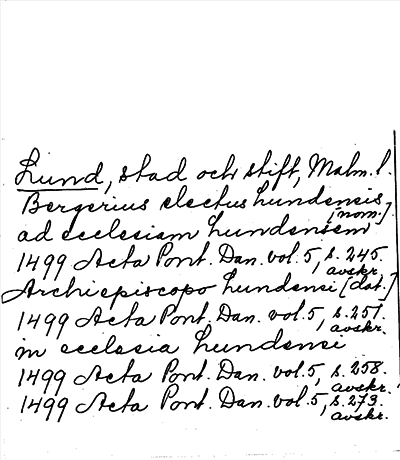 Lund, stad och stift, Malm. l.
Bergerius electus lundensis [nom.]
ad ecclesiam lundensem
1499 Acta Pont. Dan. vol. 5, s. 245. avskr.
Archiepiscopo lundensi [dat.]
1499 Acta Pont. Dan. vol. 5, s. 251. avskr.
in ecclesia lundensi
1499 Acta Pont. Dan. vol. 5, s. 258. avskr.
1499 Acta Pont. Dan. vol. 5, s. 273. avskr.